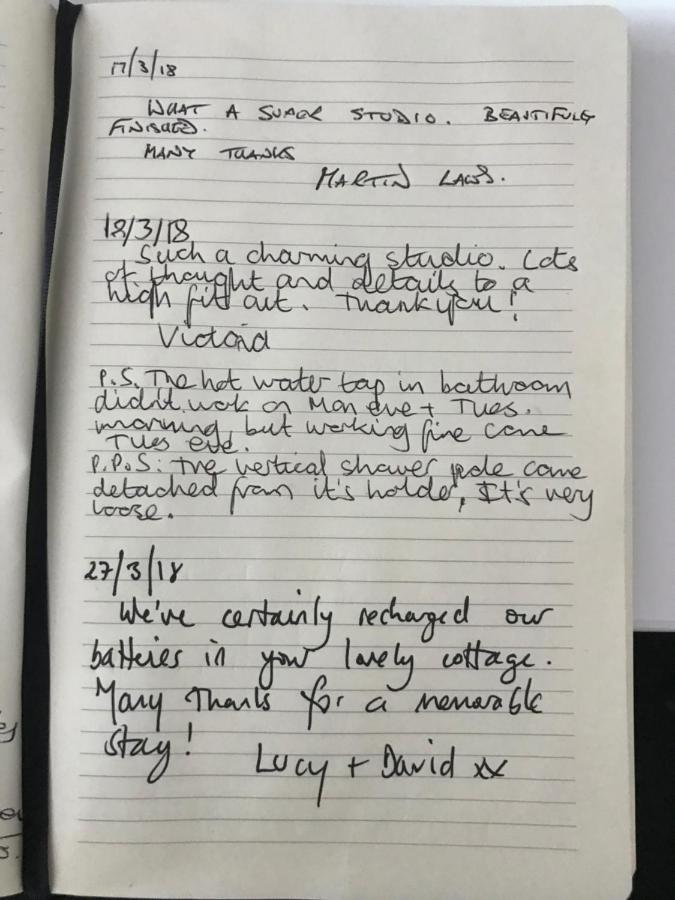 17/3/18
WHAT A SUPER STUDIO. BEAUTIFULLY
FINISHED.
MANY THANKS
MARTIN LAWS.
18/3/18
Such a charming studio. Lots
of thought and details to a
high fit out. Thank you!
Victoria
P.S. The hot water tap in bathroom
didn't work on Mon eve + Tues.
morning, but working fine come
Tues eve.
P.P.S: the vertical shower pole came
detached from it's holder, It's very
loose.
27/3/18
We've certainly recharged our
batteries in your lovely cottage.
Many Thanks for a memorable
stay!
Lucy + David xx